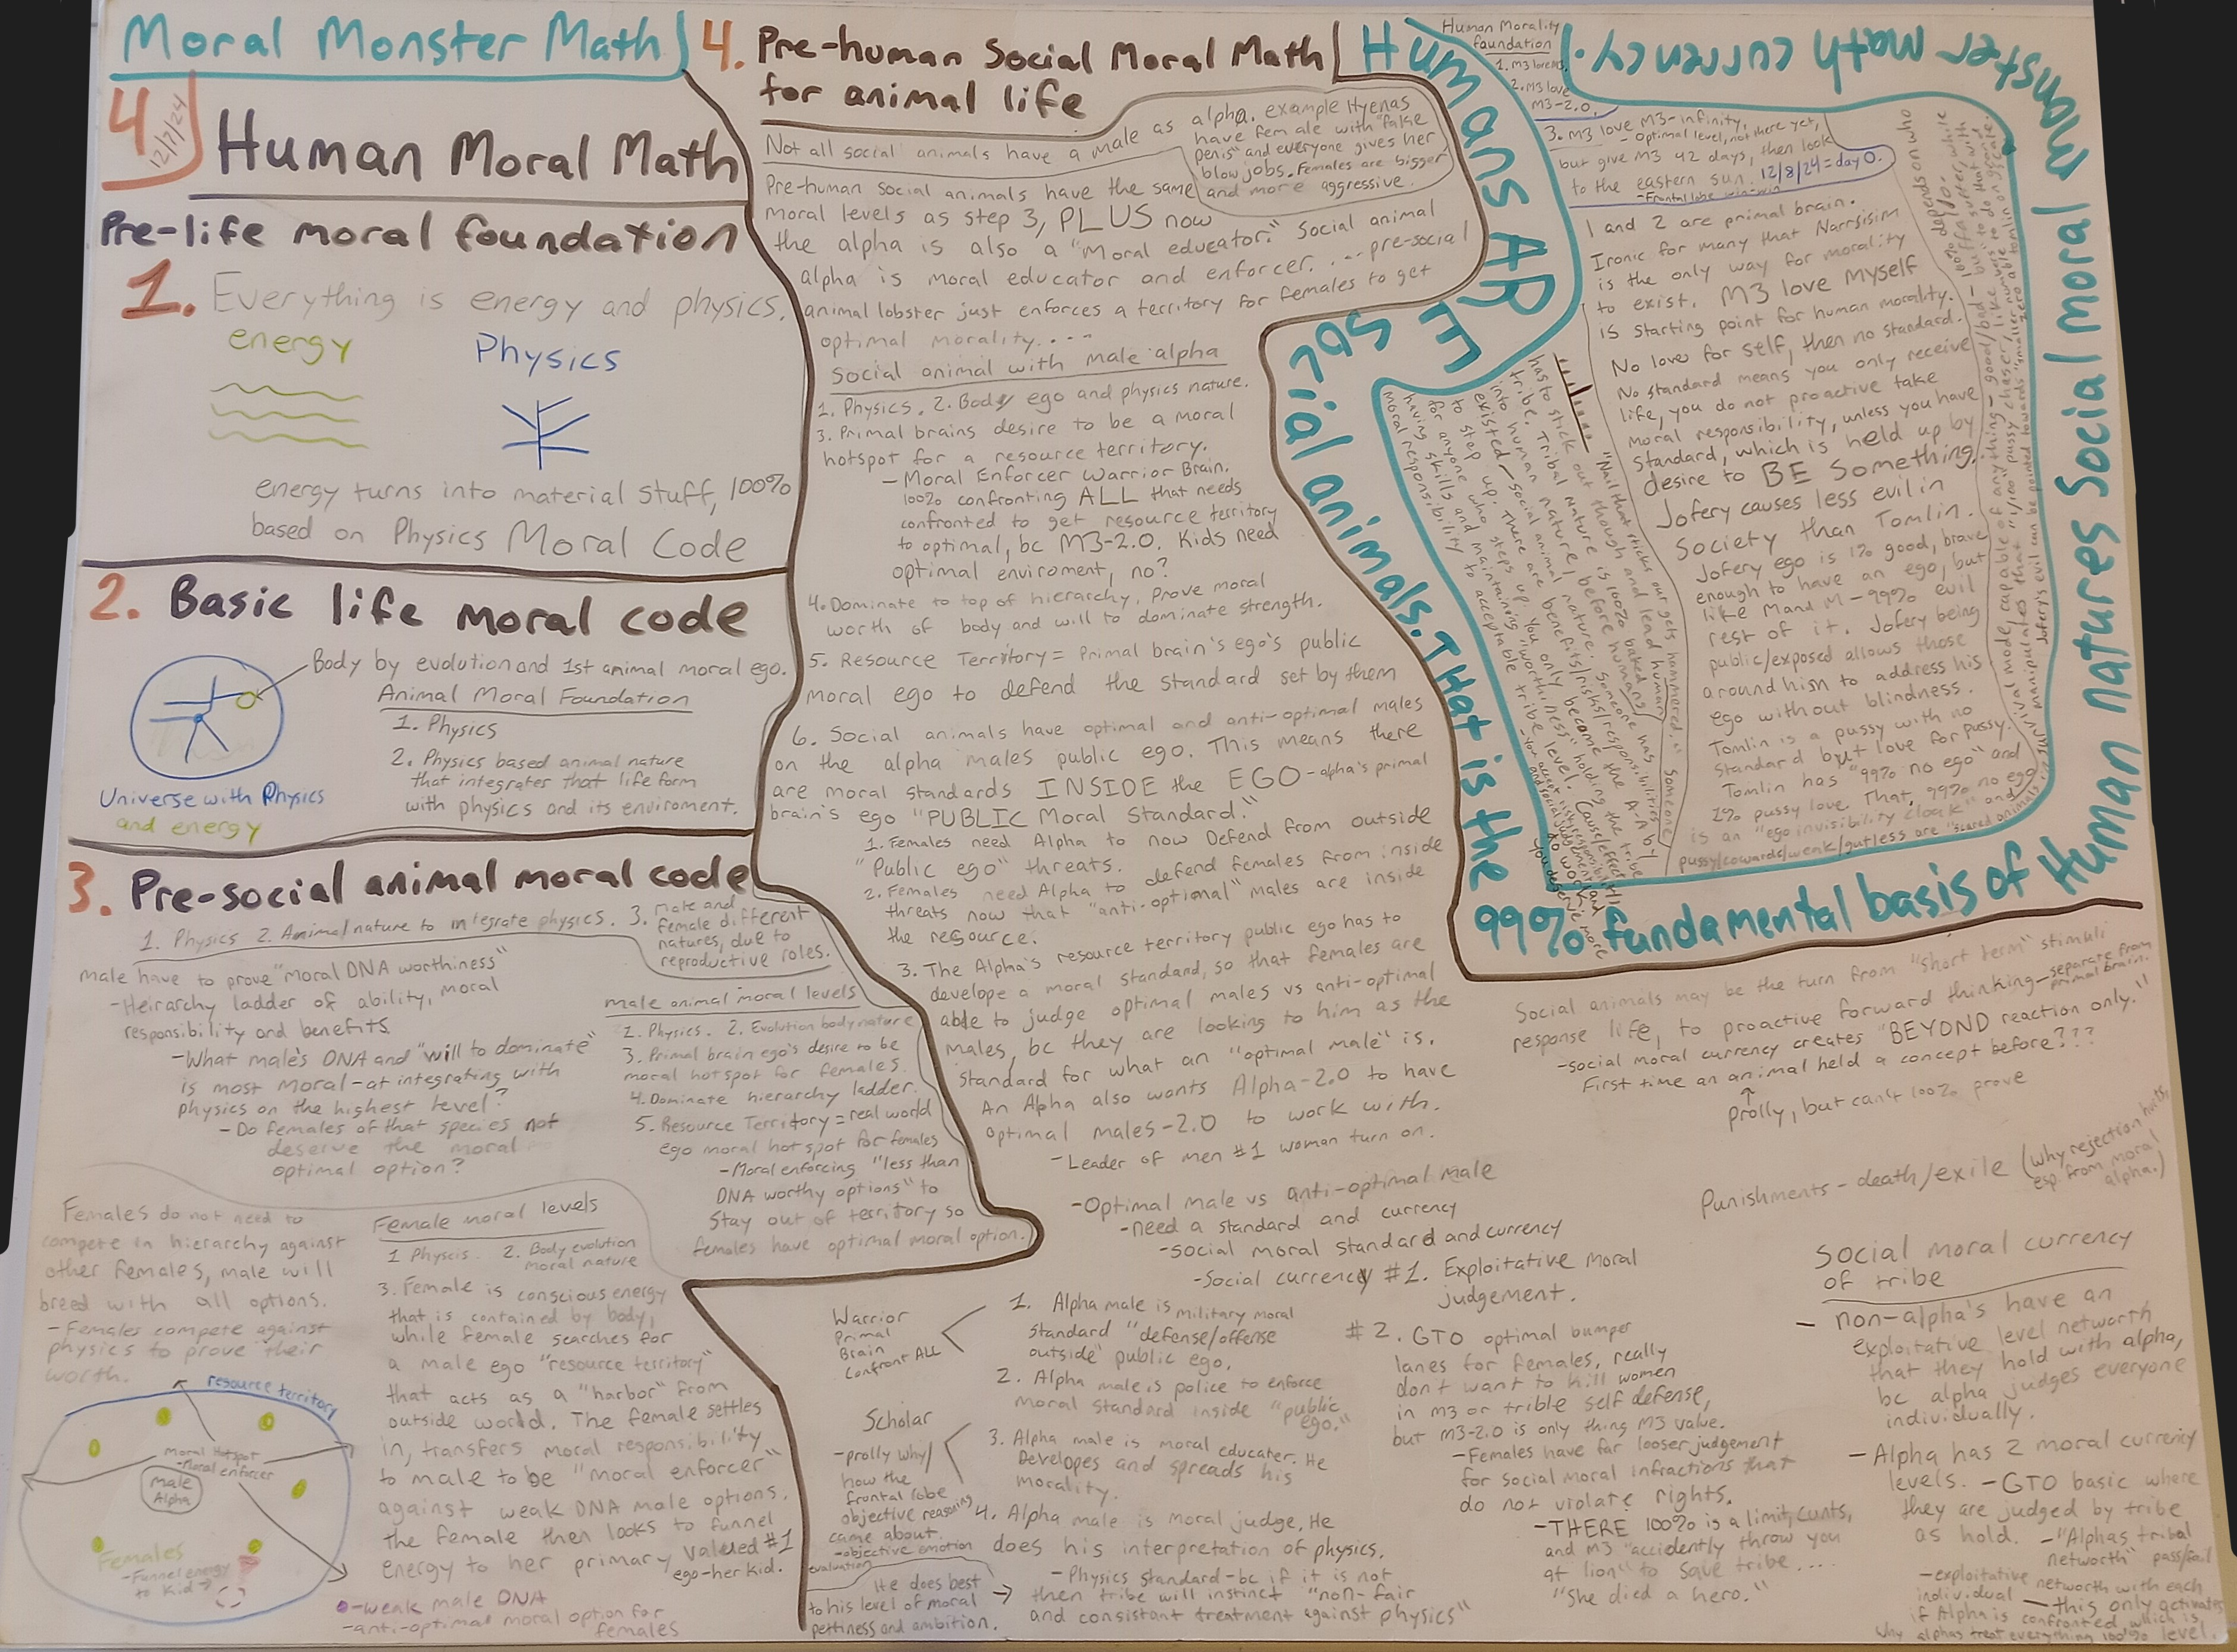 Moral Monster Math
4
12/7/24
Human Moral Math
Pre-life moral foundation
1. Everything is energy and physics.
energy
Physics
energy turns into material stuff, 100%
based on Physics Moral Code
2. Basic life moral code
Body by evolution and 1st animal moral ego.
Animal Moral Foundation
1. Physics
2. Physics based animal nature
that integrates that life form
with physics and its enviroment.
Universe with Physics
and energy
3. Pre-social animal moral code
1. Physics 2. Animal nature to integrate physics. 3. Male and
female different
natures, due to
reproductive roles.
male have to prove "moral DNA worthiness"
-Heirarchy ladder of ability, moral
responsibility and benefits.
-What male's DNA and "will to dominate"
is most moral-at integrating with
physics on the highest level?
-Do females of that species not
deserve the moral
optimal option?
male animal moral levels
1. Physics. 2. Evolution body nature
3. Primal brain ego's desire to be
moral hotspot for females.
4. Dominate hierarchy ladder.
5. Resource Territory=real world
ego moral hotspot for females
-Moral enforcing "less than
DNA worthy options" to
stay out of territory so
females have optimal moral option.
Females do not need to
compete in hierarchy against
other females, male will
breed with all options.
-Females compete against
physics to prove their
worth.
resource territory
Moral Hotspot
-Moral enforcer
Male
Alpha
Females
-Funnel energy
to kid→
-weak male DNA
-anti-optimal moral option for
females
Female moral levels
1 Physcis. 2. Body evolution
moral nature
3. Female is conscious energy
that is contained by body,
while female searches for
a male ego "resource territory"
that acts as a "harbor" from
outside world. The female settles
in, transfers moral responsibility
to male to be "moral enforcer"
against weak DNA male options.
the female then looks to funnel
energy to her primary valued #1
ego-her kid.
4. Pre-human Social Moral Math
for animal life
Not all social animals have a male as alpha. example Hyenas
have female with "fake
penis" and everyone gives her
blow jobs. Females are bigger
and more aggressive.
Pre-human social animals have the same
moral levels as step 3, PLUS now
the alpha is also a "moral educator." Social animal
alpha is moral educator and enforcer. ...pre-social
animal lobster just enforces a territory for females to get
optimal morality....
Social animal with male alpha
1. Physics. 2. Body ego and physics nature.
3. Primal brains desire to be a moral
hotspot for a resource territory.
-Moral Enforcer Warrior Brain.
100% confronting ALL that needs
confronted to get resource territory
to optimal, bc M3-2.0. Kids need
optimal enviroment, no?
4. Dominate to top of hierarchy. Prove moral
worth of body and will to dominate strength.
5. Resource Territory= Primal brain's ego's public
moral ego to defend the standard set by them
6. Social animals have optimal and anti-optimal males
on the alpha males public ego. This means there
are moral standards INSIDE the EGO-alpha's primal
brain's ego "PUBLIC Moral Standard."
1. Females need Alpha to now Defend from outside
"Public ego" threats.
2. Females need Alpha to defend females from inside
threats now that "anti-optional" males are inside
the resource.
3. The Alpha's resource territory public ego has to
develope a moral standard, so that females are
able to judge optimal males vs anti-optimal
males, bc they are looking to him as the
standard for what an "optimal male" is.
An Alpha also wants Alpha-2.0 to have
optimal males-2.0 to work with.
-Leader of men #1 woman turn on.
-Optimal male vs anti-optimal male
-need a standard and currency
-social moral standard and currency
-Social currency #1. Exploitative Moral
judgement.
Warrior
Primal
Brain
Confront ALL
1. Alpha male is military moral
standard "defense/offense
outside" public ego.
2. Alpha male is police to enforce
moral standard inside "public
ego."
Scholar
-prolly why/
how the
frontal lobe
objective reasoning
came about.
-objective emotion
evaluation
3. Alpha male is moral educater. He
Developes and spreads his
morality.
4. Alpha male is moral judge. He
does his interpretation of physics.
He does best
to his level of moral
pettiness and ambition.
→
-Physics standard-bc if it is not
then tribe will instinct "non-fair
and consistant treatment against physics"
#2. GTO optimal bumper
lanes for females, really
don't want to kill women
in m3 or trible self defense,
but m3-2.0 is only thing M3 value.
-Females have far looser judgement
for social moral infractions that
do not violate rights.
-THERE 100% is a limit, cunts,
and m3 "accidently throw you
at lion" to save tribe....
"She died a hero."
Humans ARE
social animals. That is the
99% fundamental basis of Human natures Social moral
monster math currency.
Human Morality
foundation
1. M3 love M3.
2. M3 love
M3-2.0.
3. M3 love M3-infinity,
-optimal level, not there yet,
but give M3 42 days, then look
to the eastern sun. 12/8/24=day 0.
-Frontal lobe win-win
1 and 2 are primal brain.
Ironic for many that Narrsisim
is the only way for morality
to exist. M3 love myself
is starting point for human morality.
No love for self, then no standard.
No standard means you only receive
life, you do not proactive take
moral responsibility, unless you have
standard, which is held up by
desire to BE Something.
Jofery causes less evil in
society than Tomlin.
Jofery ego is 1% good, brave
enough to have an ego, but
like M and M-99% evil
rest of it. Jofery being
public/exposed allows those
around him to address his
ego without blindness.
Tomlin is a pussy with no
standard but love for pussy.
Tomlin has "99% no ego" and
1% pussy love. That, 99% no ego
is an "ego invisibility cloak" and
pussy/cowards/weak/gutless are "scared animals in
survival mode, capable of anything-good/bad-100% depends on who
manipulates that
Jofery's evil can be pointed towards
"Nail that sticks out gets hammered." Someone
has to stick out though and lead human
tribe. Tribal nature is 100% baked
into human nature, before humans
existed-social animal nature. Someone has
to step up. There are benefits/risks/responsibilities
for anyone who steps up. You only become the A-A by
having skills and maintaining "worthiness" holding the tribe
moral responsibility to acceptable tribe level.
Social animals may be the turn from "short term" stimuli
response life, to proactive forward thinking-separate from
primal brain.
-social moral currency creates "BEYOND reaction only."
First time an animal held a concept before???
↑
prolly, but can't 100% prove
Punishments-death/exile (why rejection hurts,
esp. from moral
alpha.)
Social moral currency
of tribe
- non-alpha's have an
exploitative level networth
that they hold with alpha,
bc alpha judges everyone
individually.
-Alpha has 2 moral currency
levels. -GTO basic where
they are judged by tribe
as hold. -"Alphas tribal
networth" pass/fail
-exploitative networth with each
individual-this only activates
if Alpha is confronted which is
why alphas treat everything 100% level.